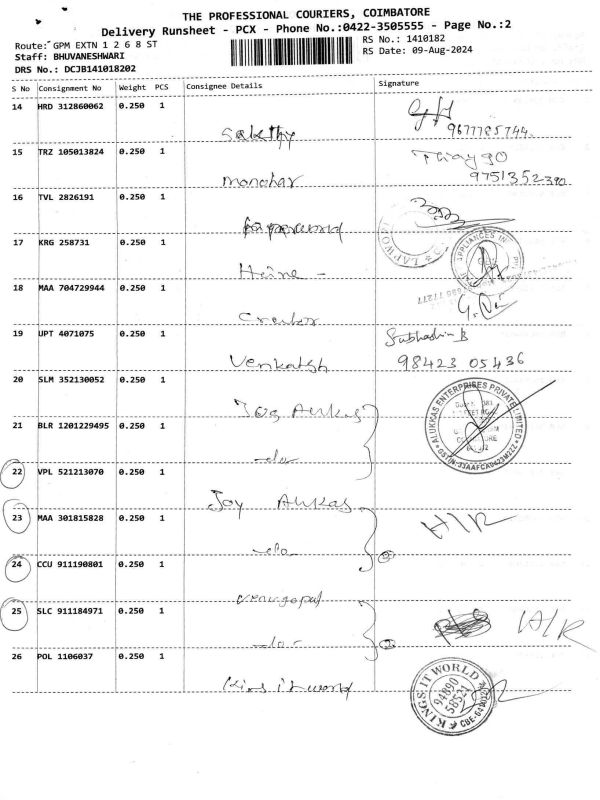 THE PROFESSIONAL COURIERS, COIMBATORE
Delivery Runsheet - PCX - Phone No.:0422-3505555 - Page No.:2
Route: GPM EXTN 1 2 6 8 ST
RS No.: 1410182
Staff: BHUVANESHWARI
RS Date: 09-Aug-2024
DRS No.: DCJB141018202
S No Consignment No Weight PCS Consignee Details Signature
14 HRD 312860062 0.250 1
Sakthy 9677785744
15 TRZ 105013824 0.250 1
manohar 9751352390
16 TVL 2826191 0.250 1
17 KRG 258731 0.250 1
18 MAA 704729944 0.250 1
19 UPT 4071075 0.250 1 Subhashin B
Venkatsh 98423 05436
20 SLM 352130052 0.250 1
21 BLR 1201229495 0.250 1
-do-
ALUKKAS ENTERPRISES PRIVATE LIMITED
22 VPL 521213070 0.250 1
Joy Alukas
23 MAA 301815828 0.250 1 H/R
-do-
24 CCU 911190801 0.250 1
Venugopal
25 SLC 911184971 0.250 1 H/R
-do-
26 POL 1106037 0.250 1
Kings it world
KINGS IT WORLD
94890
58521